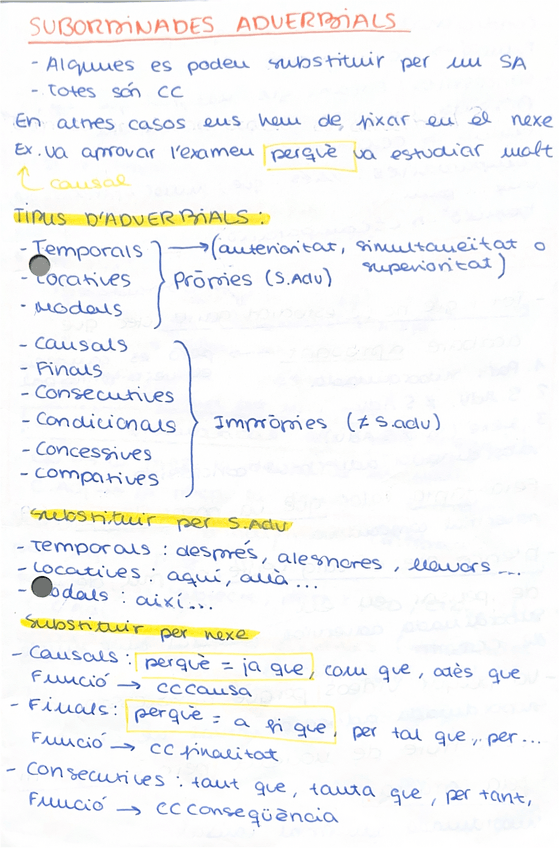 SUBORDINADES ADVERBIALS
- Algunes es poden substituir per un SA
- Totes són CC
En altres casos ens hem de fixar en el nexe
Ex. va aprovar l'examen perquè va estudiar molt
causal
TIPUS D'ADVERBIALS:
- Temporals → (anterioritat, simultaneïtat o
superioritat)
- Locatives Pròpies (S.Adv)
- Modals
- Causals
- Finals
- Consecutives
- Condicionals Impròpies (≠ S.adv)
- Concessives
- Compatives
Substituir per S.Adv
- Temporals : després, aleshores, llavors ...
- Locatives : aquí, allà ...
- Modals : així...
Substituir per nexe
- Causals: perquè = ja que, com que, atès que
Funció → CC causa
- Finals: perquè = a fi que, per tal que, per...
Funció → CC finalitat
- Consecutives : tant que, tanta que, per tant,
Funció → CC conseqüència